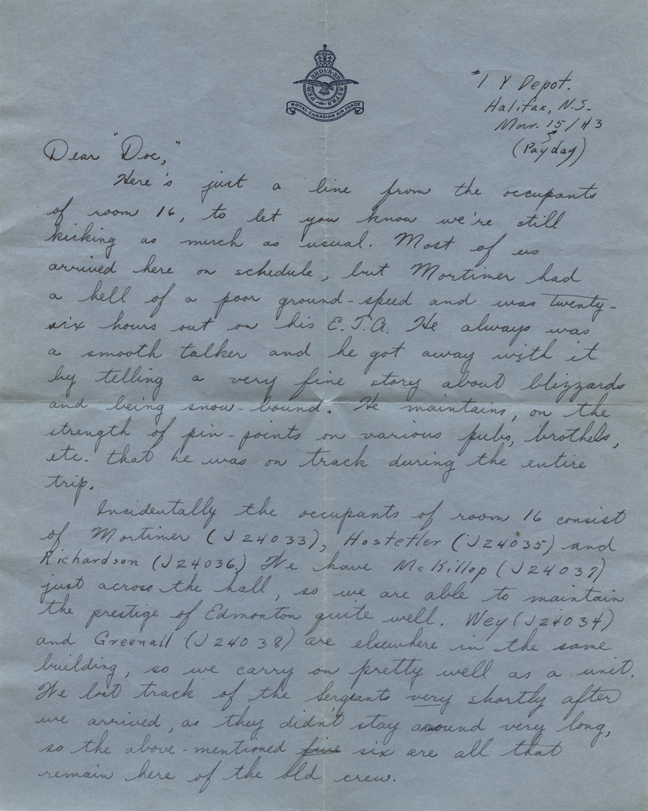 PER ARDUA AD ASTRA
ROYAL CANADIAN AIR FORCE
"1 Y Depot.
Halifax, N.S.
Mar. 15/43
(Payday)
Dear "Doc,"
Here's just a line from the occupants
of room 16, to let you know we're still
kicking as much as usual. Most of us
arrived here on schedule, but Mortimer had
a hell of a poor ground-speed and was twenty-
six hours out on his E.T.A. He always was
a smooth talker and he got away with it
by telling a very fine story about blizzards
and being snow-bound. He maintains, on the
strength of pin-points on various pubs, brothels,
etc. that he was on track during the entire
trip.
Incidentally the occupants of room 16 consist
of Mortimer (J24033), Hostetler (J24035) and
Richardson (J24036.) We have McKillop (J24037)
just across the hall, so we are able to maintain
the prestige of Edmonton quite well. Wey (J24034)
and Greenall (J24038) are elsewhere in the same
building, so we carry on pretty well as a unit.
We lost track of the Sergeants very shortly after
we arrived, as they didn't stay around very long,
so the above-mentioned five six are all that
remain here of the old crew.